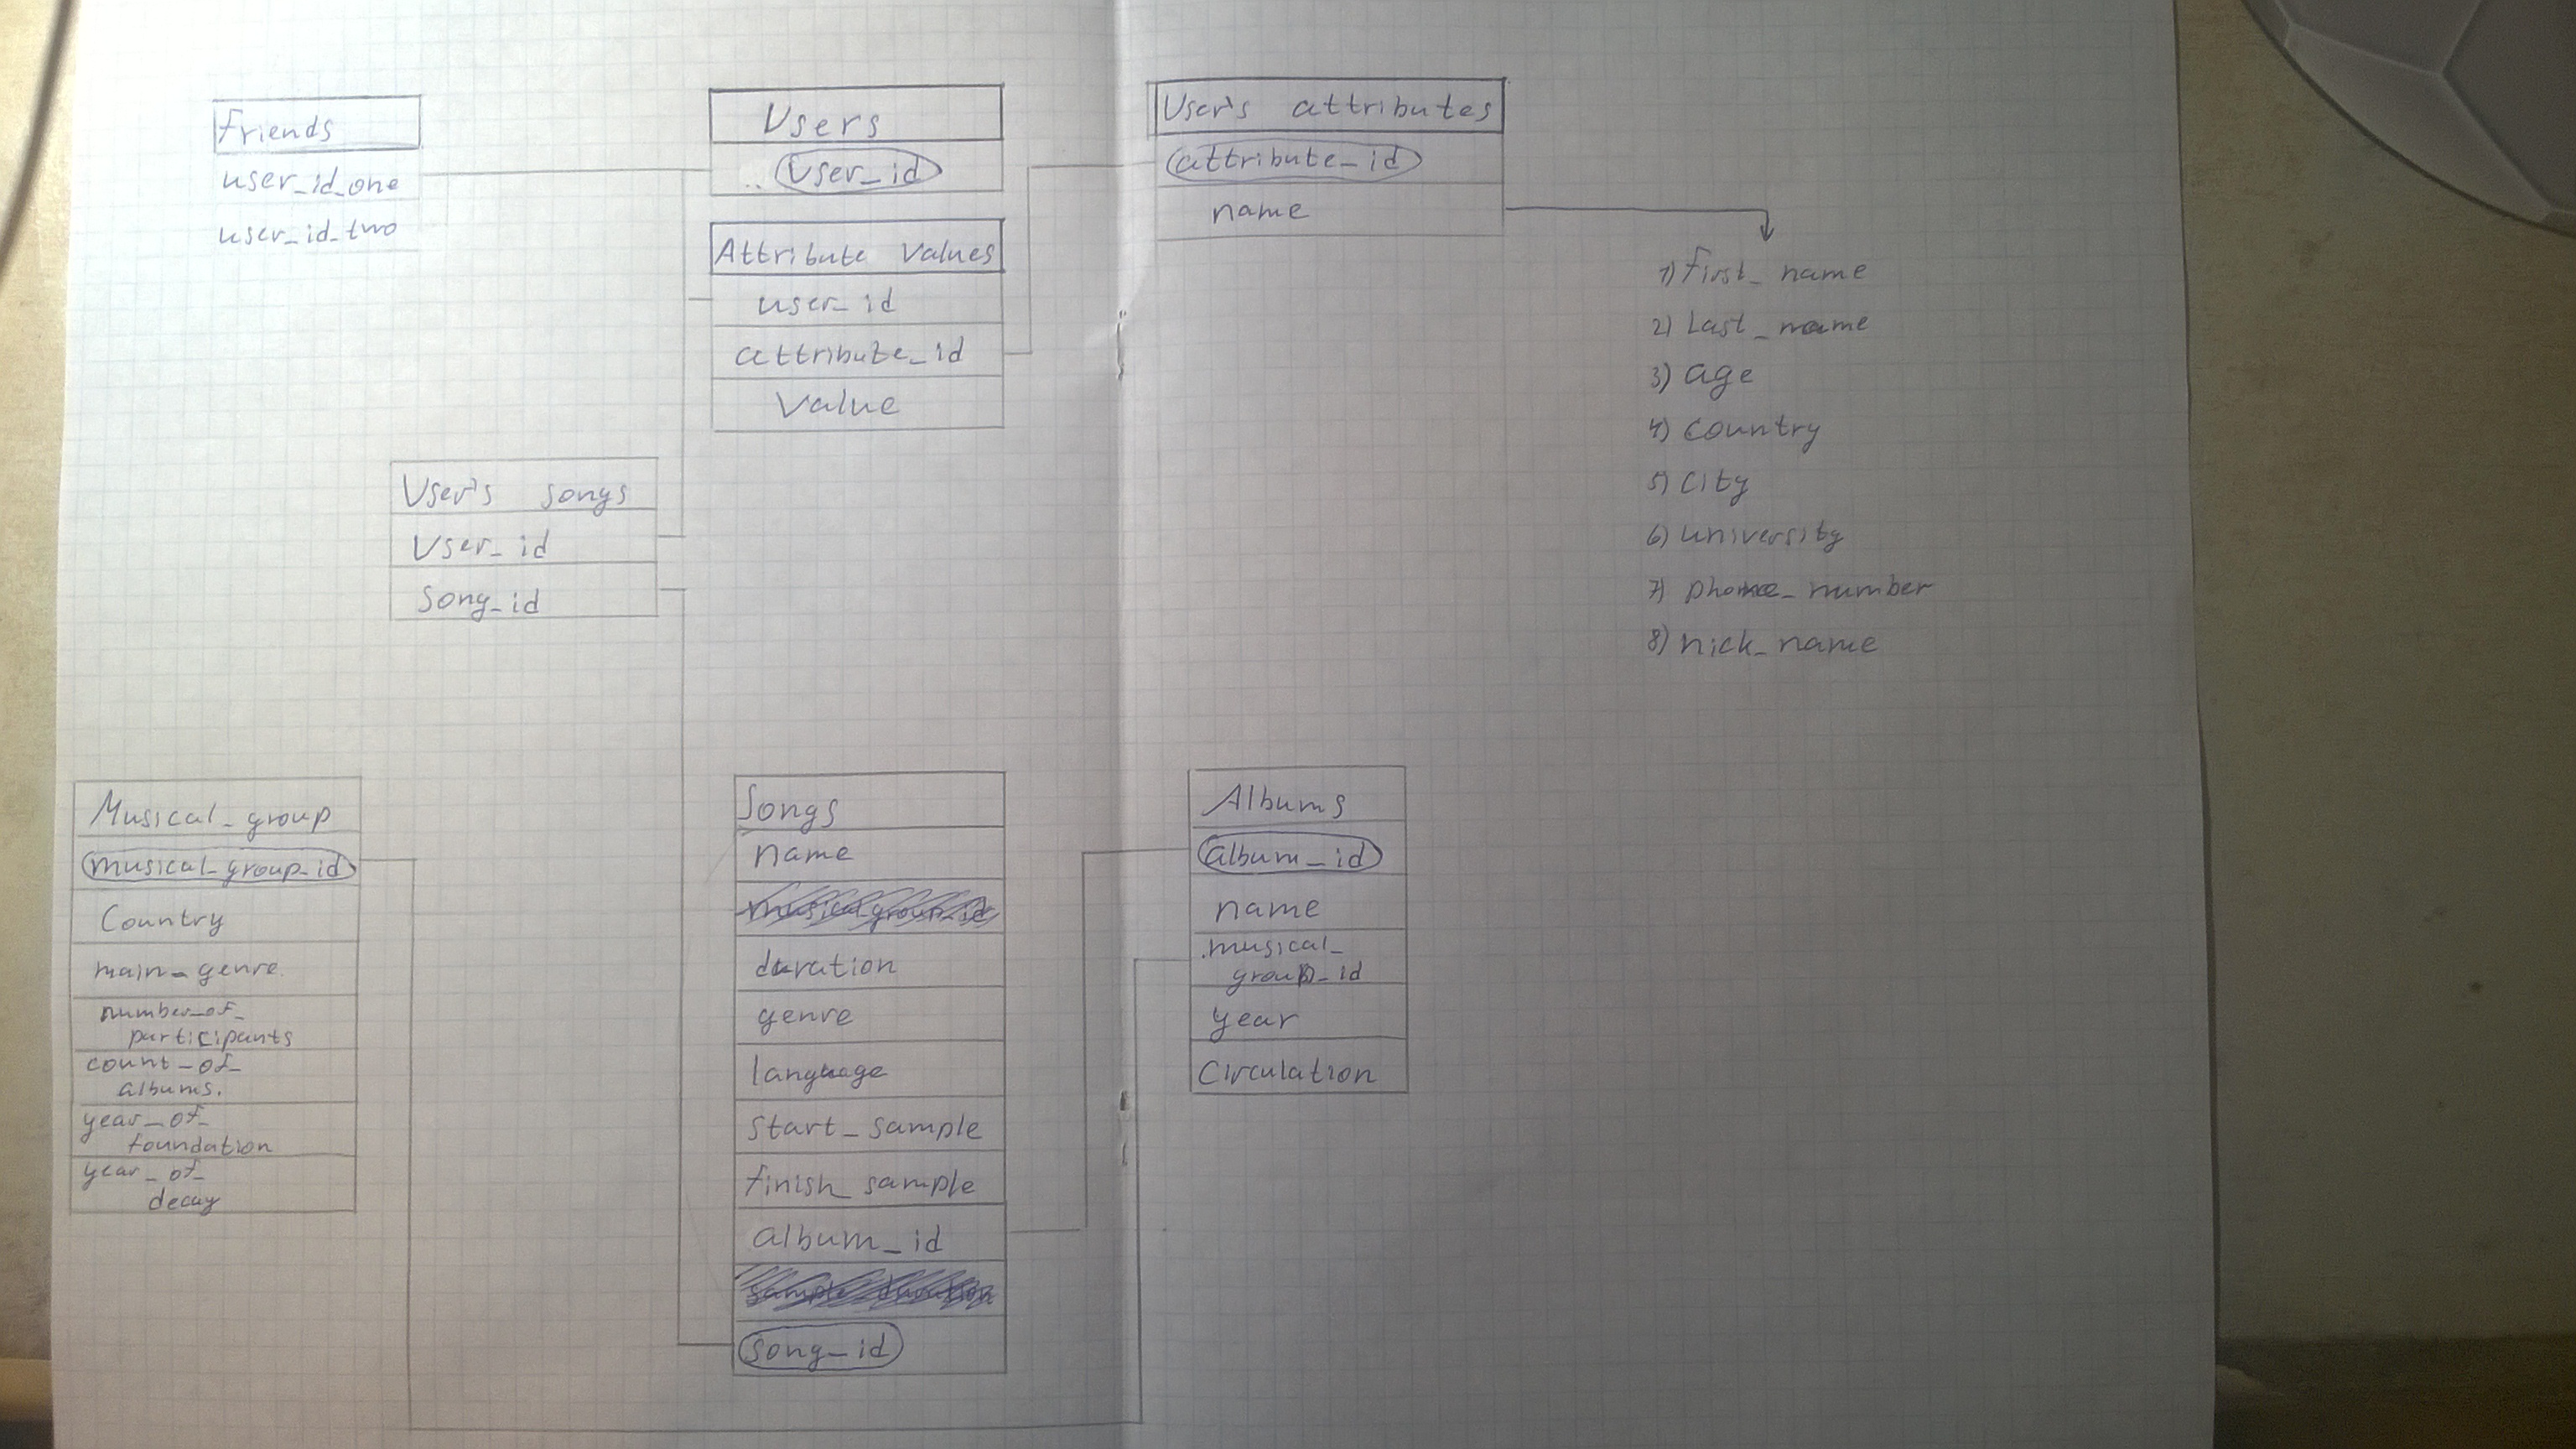 Friends
user_id_one
user_id_two
Users
user_id
Attribute values
user_id
attribute_id
value
User's attributes
attribute_id
name
1) first_name
2) Last_name
3) age
4) country
5) city
6) university
7) phone_number
8) nick_name
User's songs
User_id
Song_id
Musical_group
musical_group_id
Country
main_genre
number_of_
participants
count_of_
albums.
year_of_
foundation
year_of_
decay
Songs
name
musical_group_id
duration
genre
language
start_sample
finish_sample
album_id
sample_duration
song_id
Albums
album_id
name
musical_
group_id
year
circulation